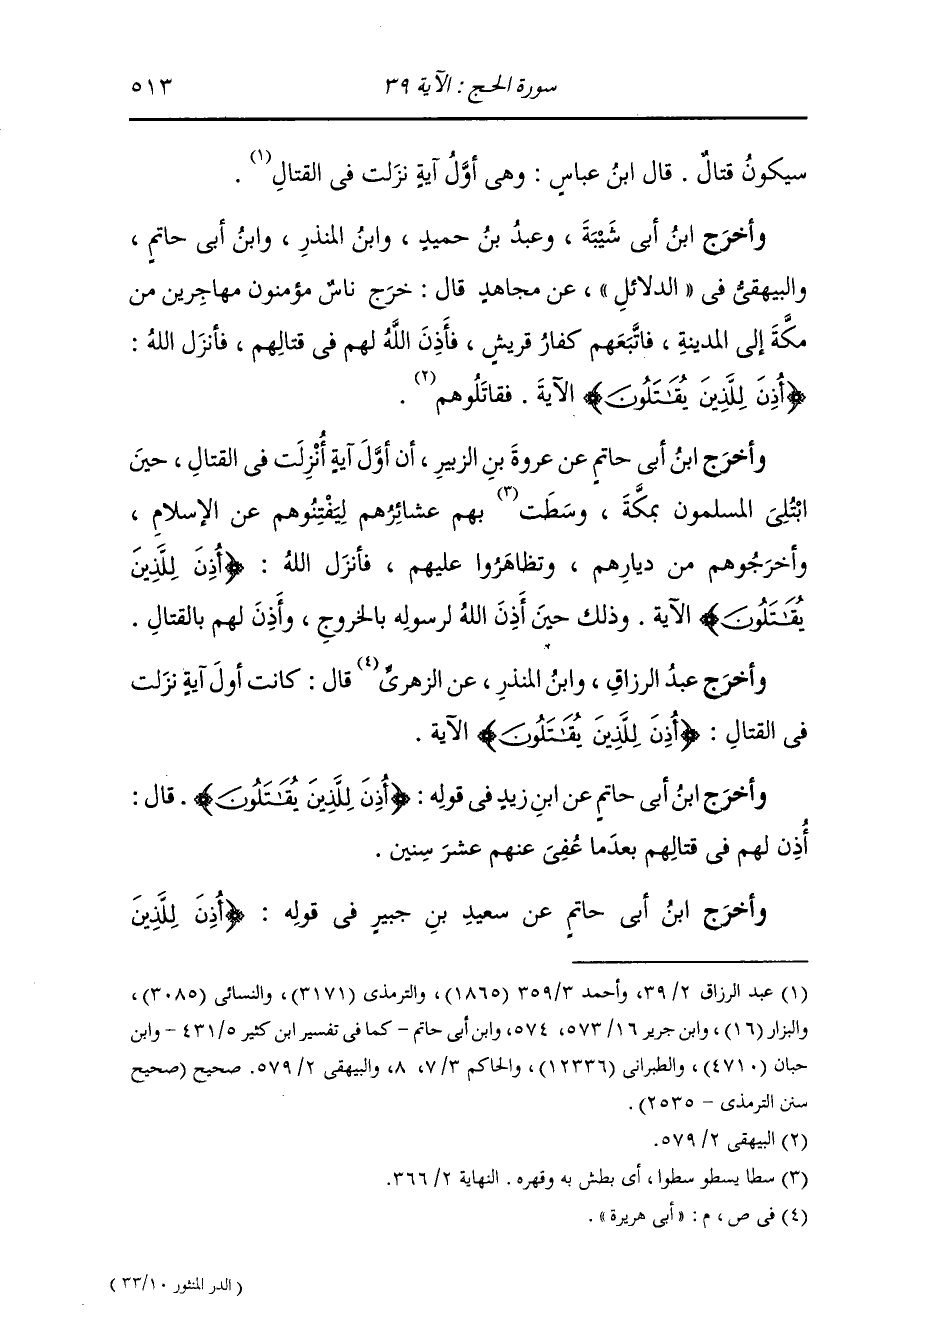 سورة الحج : الآية ٣٩ ٥١٣
سيكونُ قتالٌ . قال ابنُ عباسٍ : وهى أوَّلُ آيةٍ نزَلت فى القتالِ(١) .
وأخرَج ابنُ أبى شَيْبَةَ ، وعبدُ بنُ حميدٍ ، وابنُ المنذرِ ، وابنُ أبى حاتمٍ ،
والبيهقىُّ فى « الدلائلِ » ، عن مجاهدٍ قال : خرَج ناسٌ مؤمنون مهاجرين من
مكَّةَ إلى المدينةِ ، فاتَّبَعَهم كفارُ قريشٍ ، فأَذِنَ اللَّهُ لهم فى قتالِهم ، فأنزَل اللهُ :
﴿أُذِنَ لِلَّذِينَ يُقَـٰتَلُونَ﴾ الآيةَ . فقاتَلُوهم(٢) .
وأخرَج ابنُ أبى حاتمٍ عن عروةَ بنِ الزبيرِ ، أن أوَّلَ آيةٍ أُنْزِلَت فى القتالِ ، حينَ
ابْتُلِىَ المسلمون بمكَّةَ ، وسَطَت(٣) بهم عشائِرُهم لِيَفْتِنُوهم عن الإسلامِ ،
وأخرَجُوهم من ديارِهم ، وتظاهَرُوا عليهم ، فأنزَل اللهُ : ﴿أُذِنَ لِلَّذِينَ
يُقَـٰتَلُونَ﴾ الآية . وذلك حينَ أَذِنَ اللهُ لرسولِه بالخروجِ ، وأَذِنَ لهم بالقتالِ .
وأخرَج عبدُ الرزاقِ ، وابنُ المنذرِ ، عن الزهرىِّ(٤) قال : كانت أولَ آيةٍ نزَلت
فى القتالِ : ﴿أُذِنَ لِلَّذِينَ يُقَـٰتَلُونَ﴾ الآية .
وأخرَج ابنُ أبى حاتمٍ عن ابنِ زيدٍ فى قولِه : ﴿أُذِنَ لِلَّذِينَ يُقَـٰتَلُونَ﴾ . قال :
أُذِن لهم فى قتالِهم بعدَما عُفِىَ عنهم عشرَ سِنين .
وأخرَج ابنُ أبى حاتمٍ عن سعيدِ بنِ جبيرٍ فى قولِه : ﴿أُذِنَ لِلَّذِينَ
(١) عبد الرزاق ٢/ ٣٩، وأحمد ٣٥٩/٣ (١٨٦٥) ، والترمذى (٣١٧١) ، والنسائى (٣٠٨٥) ،
والبزار (١٦) ، وابن جرير ١٦/ ٥٧٣، ٥٧٤، وابن أبى حاتم – كما فى تفسير ابن كثير ٤٣١/٥ – وابن
حبان (٤٧١٠) ، والطبرانى (١٢٣٣٦) ، والحاكم ٣/ ٧، ٨، والبيهقى ٢/ ٥٧٩. صحيح (صحيح
سنن الترمذى – ٢٥٣٥) .
(٢) البيهقى ٢/ ٥٧٩.
(٣) سطا يسطو سطوا ، أى بطش به وقهره . النهاية ٢/ ٣٦٦.
(٤) فى ص ، م : « أبى هريرة » .
( الدر المنثور ٣٣/١٠ )